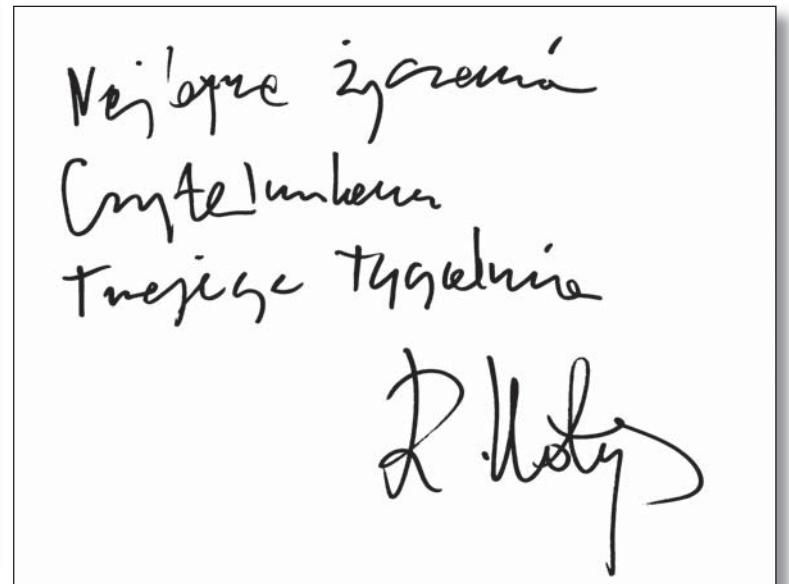 Najlepsze życzenia
Czytelnikom
Twojego Tygodnia
R.